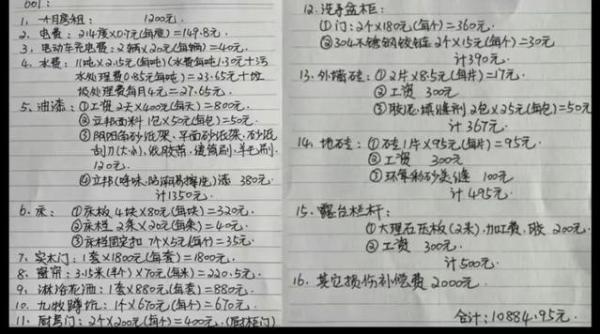 001:
1、一个月房租: 1200元.
2、电费: 214度×0.7元(每度)=149.8元.
3、电动车充电费:2辆×20元(每辆)=40元.
4、水费: 11吨×2.15元(每吨)(水费每吨1.30元+污
水处理费0.85元每吨)=23.65元+垃
圾处理费每月4元=27.65元.
5、油漆: ①工资2天×400元(每天)=800元.
②立邦面料1包×50元(每包)=50元
③阴阳角砂纸架、平面砂纸架、砂纸
刮刀(大小)、收胶带、建筑刷、羊毛刷.
120元.
④立邦()漆 380元.
计1350元.
6、床: ①床板4块×80元(每块)=320元.
②床档2条×20元(每条)=40元.
③床档固定扣7个×5元(每个)=35元.
7、实木门:1套×1800元(每套)=1800元.
8、窗帘:3.15米(4个)×70元(每米)=220.5元.
9、淋浴花洒:1套×880元(每套)=880元.
10、九牧蹲坑: 1个×670元(每个)=670元.
11、厨房门:2个×200元(每个)=400元.(厨柜门)
12、洗手盆柜:
①门:2个×180元(每个)=360元.
②304不锈钢铰链2个×15元(每个)=30元
计390元.
13、外墙砖:①2片×8.5元(每片)=17元.
②工资 300元
③胶泥、填缝剂2包×25元(每包)=50元
计367元.
14、地砖: ①砖1片×95元(每片)=95元.
②工资 300元
③环氧彩砂美缝 100元
计495元.
15、露台栏杆:
①大理石压板(2米)、加工费、胶 200元.
②工资 300元.
计500元.
16、其它损伤补偿费2000元.
合计:10884.95元.